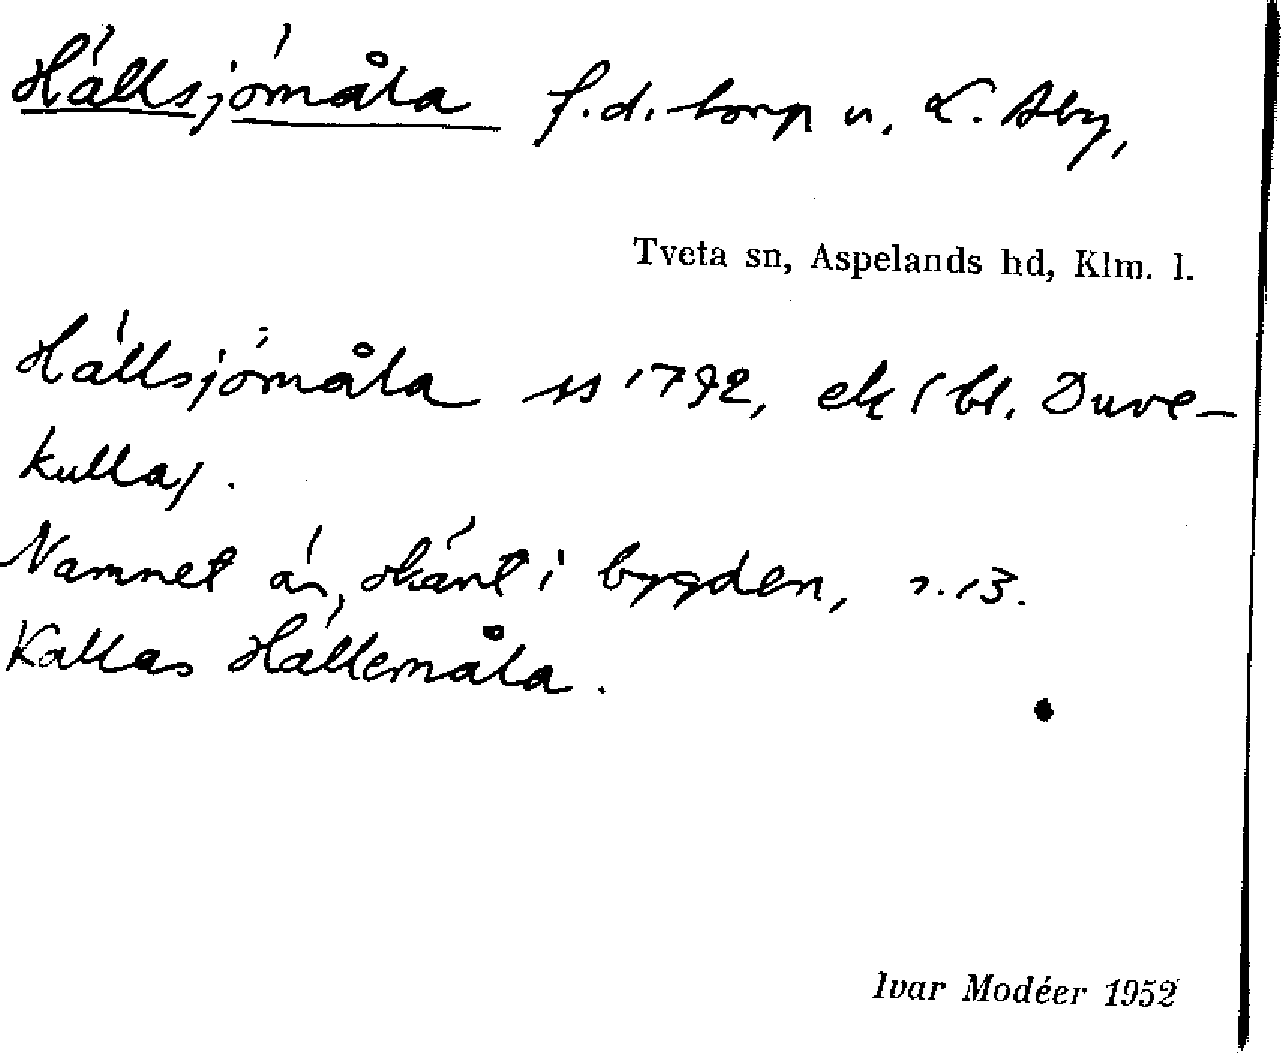 Hällsjömåla f.d. torp u. L. Åby,
Tveta sn, Aspelands hd, Klm. l.
Hällsjömåla ss 1792, ek (bl. Duve-
kulla).
Namnet är okänt i bygden, r. 13.
Kallas Hällemåla.
Ivar Modéer 1952